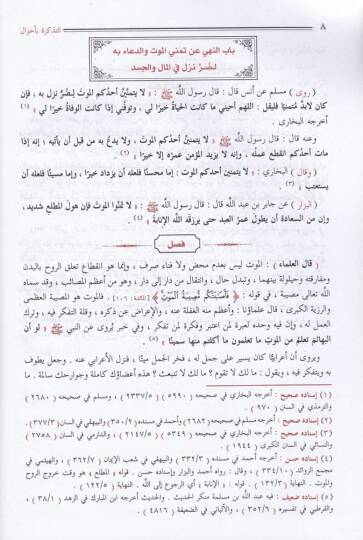 ٨
التذكرة بأحوال
باب النهي عن تمني الموت والدعاء به
لضر نزل في المال والجسد
( روى ) مسلم عن أنس قال : قال رسول الله ﷺ : « لا يتمنين أحدكم الموت لضر نزل به ، فإن
كان لابد متمنيا فليقل : اللهم أحيني ما كانت الحياة خيرا لي ، وتوفني إذا كانت الوفاة خيرا لي » (١)
أخرجه البخارى .
وعنه قال : قال رسول الله ﷺ : « لا يتمنين أحدكم الموت ، ولا يدع به من قبل أن يأتيه ؛ إنه إذا
مات أحدكم انقطع عمله ، وإنه لا يزيد المؤمن عمره إلا خيرا » (٢) .
( وقال ) البخاري : « لا يتمنين أحدكم الموت : إما محسنا فلعله أن يزداد خيرا ، وإما مسيئا فلعله أن
يستعتب » (٣) .
( البزار ) عن جابر بن عبد الله قال : قال رسول الله ﷺ : « لا تمنوا الموت فإن هول المطلع شديد ،
وإن من السعادة أن يطول عمر العبد حتى يرزقه الله الإنابة » (٤) .
فصل
( قال العلماء ) : الموت ليس بعدم محض ولا فناء صرف ، وإنما هو انقطاع تعلق الروح بالبدن
ومفارقته وحيلولة بينهما ، وتبدل حال ، وانتقال من دار إلى دار ، وهو من أعظم المصائب ، وقد سماه
الله تعالى مصيبة ، في قوله : ﴿ فَأَصَابَتْكُم مُّصِيبَةُ الْمَوْتِ ﴾ [ المائدة : ١٠٦ ] . فالموت هو المصيبة العظمى
والرزية الكبرى ، قال علماؤنا : وأعظم منه الغفلة عنه ، والإعراض عن ذكره ، وقلة التفكر فيه ، وترك
العمل له ، وإن فيه وحده لعبرة لمن اعتبر وفكرة لمن تفكر ، وفي خبر يروى عن النبي ﷺ « لو أن
البهائم تعلم من الموت ما تعلمون ما أكلتم منها سمينا » (٥)
ويروى أن أعرابيا كان يسير على جمل له ، فخر الجمل ميتا ، فنزل الأعرابي عنه . وجعل يطوف
به ويتفكر فيه ، ويقول : ما لك لا تقوم ؟ ما لك لا تنبعث ؟ هذه أعضاؤك كاملة وجوارحك سالمة . ما
(١) إسناده صحيح : أخرجه البخارى في صحيحه ( ٥٩٩٠ ) ( ٢٣٣٧/٥ ) ، ومسلم في صحيحه ( ٢٦٨٠ )
والترمذي في السنن ( ٩٧٠ ) .
(٢) إسناده صحيح : أخرجه مسلم في صحيحه ( ٢٦٨٢ ) وأحمد في مسنده ( ٣٥٠/٢ ) والبيهقي في السنن ( ٣٧٧/٣ ) .
(٣) إسناده صحيح : أخرجه البخاري في صحيحه ( ٥٣٤٩ ) ( ٢١٤٧/٥ ) ، والدارمي في السنن ( ٢٧٥٨ )
والنسائي في السنن ( ١٩٤٤ ) .
(٤) إسناده حسن : أخرجه أحمد في مسنده ( ٣٣٢/٣ ) والبيهقي في شعب الإيمان ( ٣٦٢/٧ ) ، والهيثمي في
مجمع الزوائد ( ٣٣٤/١٠ ) ، وقال : رواه أحمد والبزار وإسناده حسن . قوله « المطلع » هو وقت خروج الروح
والموت . النهاية ( ١٣٢/٣ ) . قوله : « الإنابة » أي الرجوع إلى الله . النهاية ( ١٢٢/٥ ) .
(٥) إسناده ضعيف : فيه عبد الله بن مسلمة منكر الحديث . والحديث أخرجه ابن المبارك في الزهد ( ٣٨/١ ) ،
والقرطبي في تفسيره ( ٣٥٢/٦ ) ، والألباني في الضعيفة ( ٤٨١٦ )